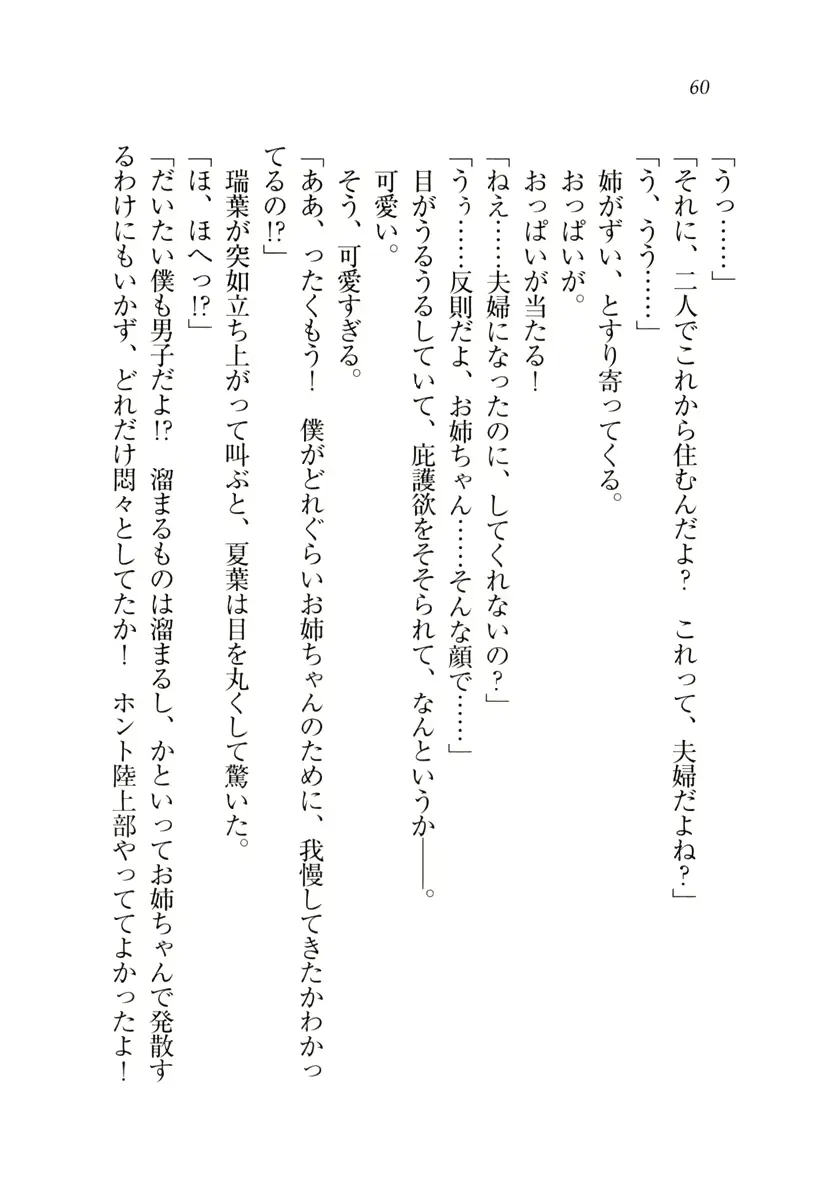 60
「うっ……」
「それに、二人でこれから住むんだよ？　これって、夫婦だよね？」
「う、うう……」
姉がずい、とすり寄ってくる。
おっぱいが。
おっぱいが当たる！
「ねえ……夫婦になったのに、してくれないの？」
「うぅ……反則だよ、お姉ちゃん……そんな顔で……」
目がうるうるしていて、庇護欲をそそられて、なんというか――。
可愛い。
そう、可愛すぎる。
「ああ、ったくもう！　僕がどれぐらいお姉ちゃんのために、我慢してきたかわかっ
てるの!?」
瑞葉が突如立ち上がって叫ぶと、夏葉は目を丸くして驚いた。
「ほ、ほへっ!?」
「だいたい僕も男子だよ!?　溜まるものは溜まるし、かといってお姉ちゃんで発散す
るわけにもいかず、どれだけ悶々としてたか！　ホント陸上部やっててよかったよ！